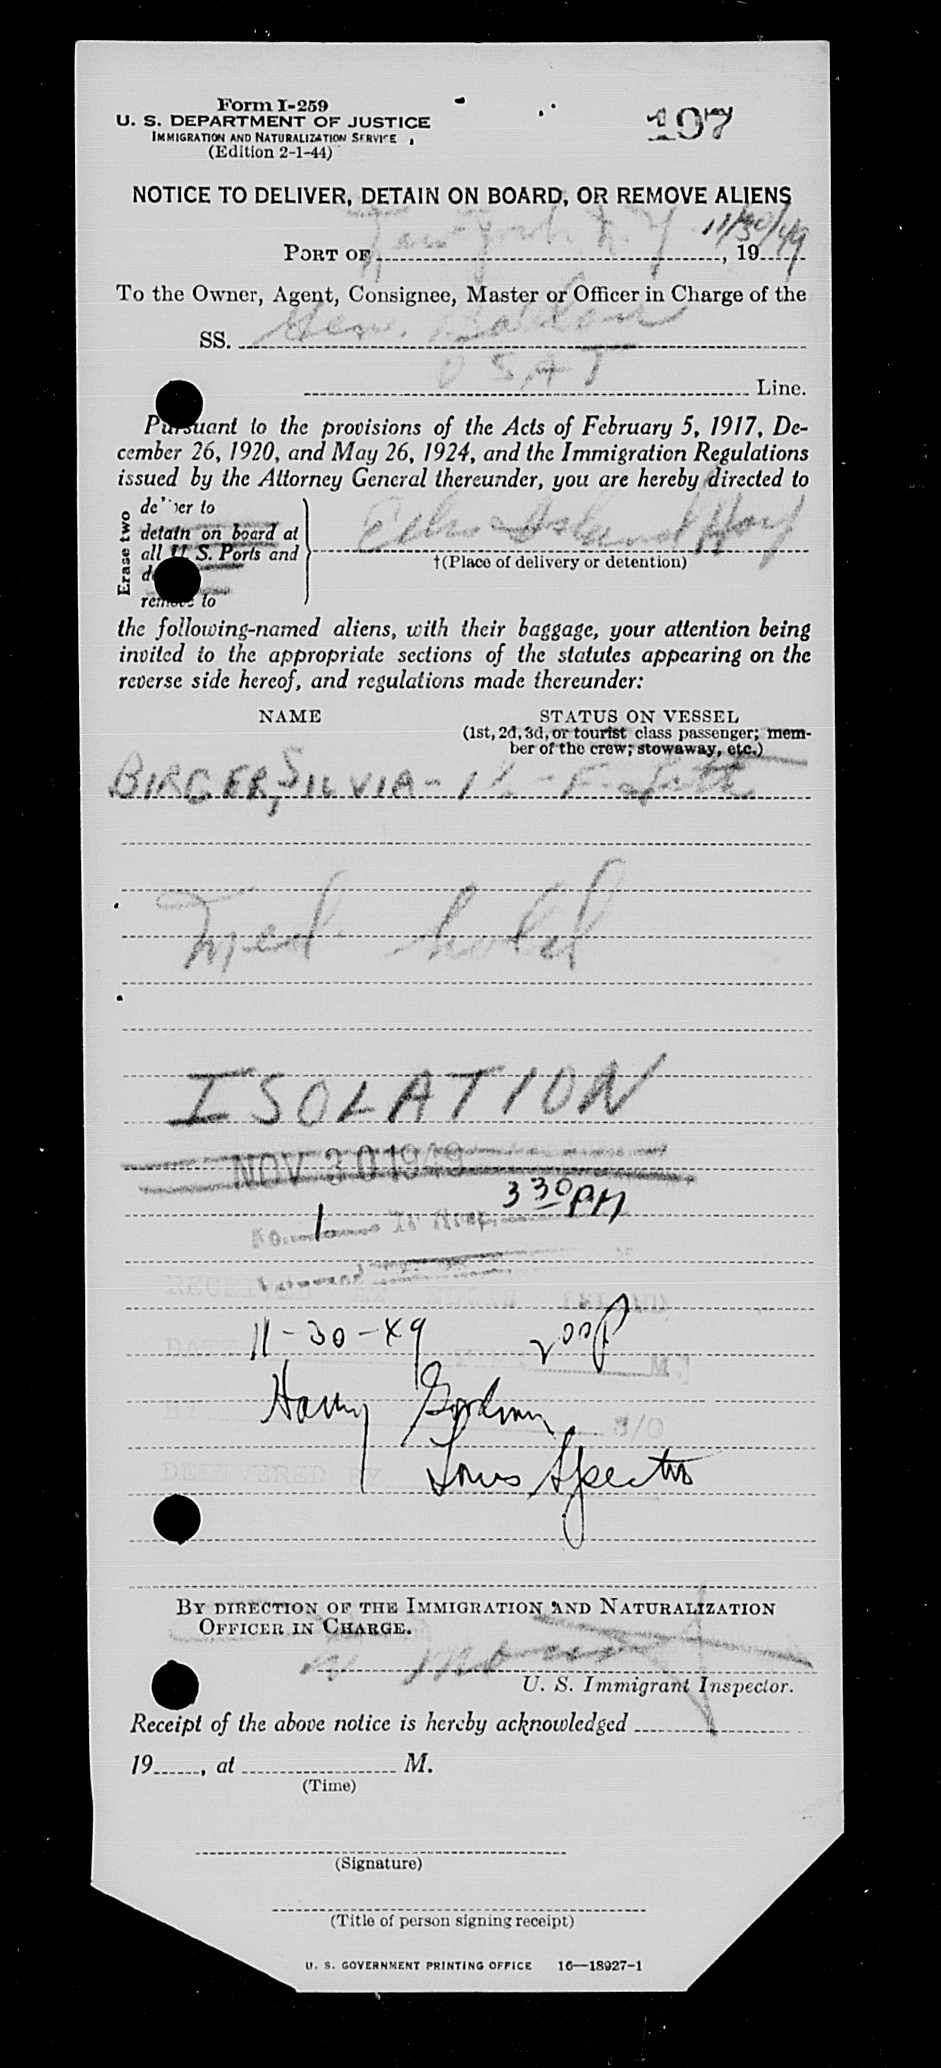 Form I-259
U. S. DEPARTMENT OF JUSTICE
IMMIGRATION AND NATURALIZATION SERVICE
(Edition 2-1-44)
197
NOTICE TO DELIVER, DETAIN ON BOARD, OR REMOVE ALIENS
PORT OF New York N.Y. 11/30/49, 19
To the Owner, Agent, Consignee, Master or Officer in Charge of the
SS. Gen.
USAT Line.
Pursuant to the provisions of the Acts of February 5, 1917, De-
cember 26, 1920, and May 26, 1924, and the Immigration Regulations
issued by the Attorney General thereunder, you are hereby directed to
Erase two
deliver to
detain on board at
all U. S. Ports and
remove to
Ellis Island Hosp
†(Place of delivery or detention)
the following-named aliens, with their baggage, your attention being
invited to the appropriate sections of the statutes appearing on the
reverse side hereof, and regulations made thereunder:
NAME
STATUS ON VESSEL
(1st, 2d, 3d, or tourist class passenger; mem-
ber of the crew; stowaway, etc.)
BIRGER, SILVIA - 1½ - F -
Med. hold
ISOLATION
NOV 30 1949
3 30 PM
1
RECEIVED AT ELLIS ISLAND
DATE M.
BY
DELIVERED BY
11-30-49 2 00 P
Harry
Louis Spector
BY DIRECTION OF THE IMMIGRATION AND NATURALIZATION
OFFICER IN CHARGE.
U. S. Immigrant Inspector.
Receipt of the above notice is hereby acknowledged
19, at M.
(Time)
(Signature)
(Title of person signing receipt)
U. S. GOVERNMENT PRINTING OFFICE 16—18927-1